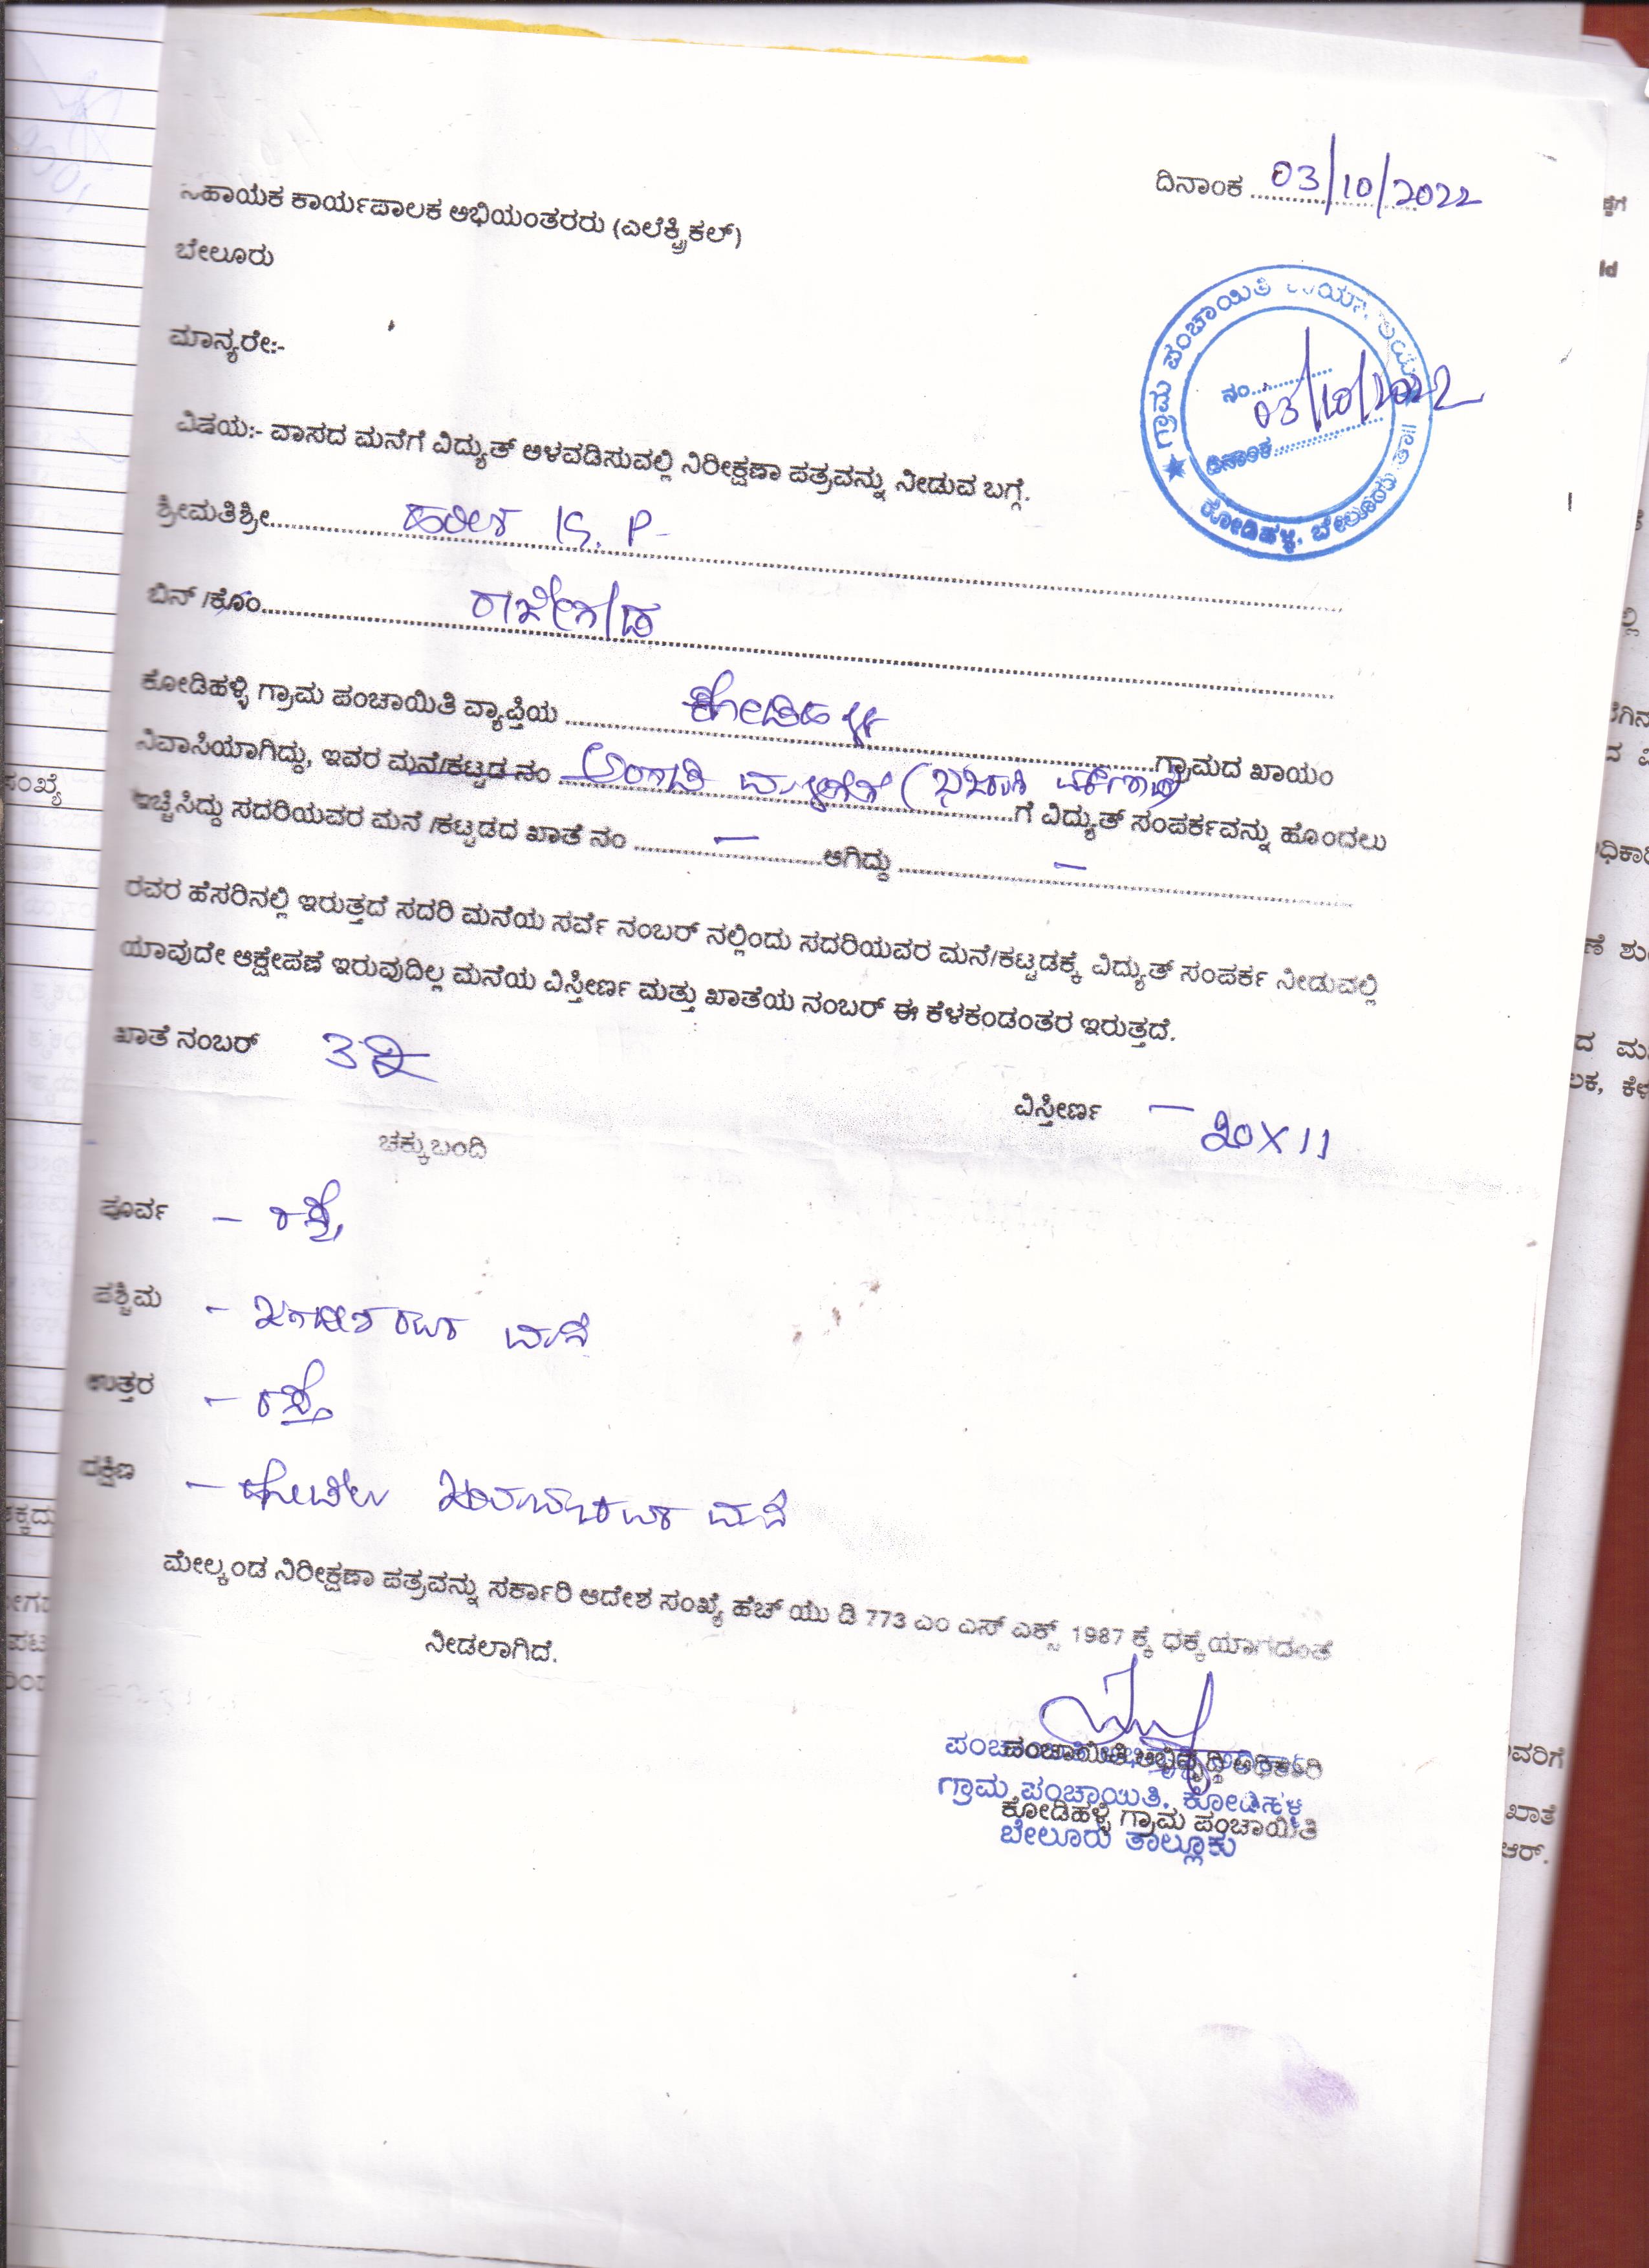 ದಿನಾಂಕ ........ 03/10/2022
ಸಹಾಯಕ ಕಾರ್ಯಪಾಲಕ ಅಭಿಯಂತರರು (ಎಲೆಕ್ಟ್ರಿಕಲ್)
ಬೇಲೂರು
ಮಾನ್ಯರೇ:-
ಗ್ರಾಮ ಪಂಚಾಯಿತಿ
ನಂ............
03/10/2022
ದಿನಾಂಕ............
ಕೋಡಿಹಳ್ಳಿ, ಬೇಲೂರು ತಾ||
ವಿಷಯ:- ವಾಸದ ಮನೆಗೆ ವಿದ್ಯುತ್ ಅಳವಡಿಸುವಲ್ಲಿ ನಿರೀಕ್ಷಣಾ ಪತ್ರವನ್ನು ನೀಡುವ ಬಗ್ಗೆ.
ಶ್ರೀಮತಿಶ್ರೀ............ ಹರೀಶ K. P
ಬಿನ್ /ಕೋಂ............ ರಾಜೇಗೌಡ
ಕೋಡಿಹಳ್ಳಿ ಗ್ರಾಮ ಪಂಚಾಯಿತಿ ವ್ಯಾಪ್ತಿಯ ............ ಕೋಡಿಹಳ್ಳಿ ............ಗ್ರಾಮದ ಖಾಯಂ
ನಿವಾಸಿಯಾಗಿದ್ದು, ಇವರ ಮನೆ/ಕಟ್ಟಡ ನಂ ಅಂಗಡಿ ............ಗೆ ವಿದ್ಯುತ್ ಸಂಪರ್ಕವನ್ನು ಹೊಂದಲು
ಇಚ್ಚಿಸಿದ್ದು ಸದರಿಯವರ ಮನೆ /ಕಟ್ಟಡದ ಖಾತೆ ನಂ ............ — ............ಆಗಿದ್ದು ............ — ............
ರವರ ಹೆಸರಿನಲ್ಲಿ ಇರುತ್ತದೆ ಸದರಿ ಮನೆಯ ಸರ್ವೆ ನಂಬರ್ ನಲ್ಲಿಂದು ಸದರಿಯವರ ಮನೆ/ಕಟ್ಟಡಕ್ಕೆ ವಿದ್ಯುತ್ ಸಂಪರ್ಕ ನೀಡುವಲ್ಲಿ
ಯಾವುದೇ ಆಕ್ಷೇಪಣೆ ಇರುವುದಿಲ್ಲ ಮನೆಯ ವಿಸ್ತೀರ್ಣ ಮತ್ತು ಖಾತೆಯ ನಂಬರ್ ಈ ಕೆಳಕಂಡಂತರ ಇರುತ್ತದೆ.
ಖಾತೆ ನಂಬರ್
ವಿಸ್ತೀರ್ಣ — 20X11
ಚಕ್ಕುಬಂದಿ
ಪೂರ್ವ – ರಸ್ತೆ
ಪಶ್ಚಿಮ – ಜಗದೀಶರವರ ಮನೆ
ಉತ್ತರ – ರಸ್ತೆ
ದಕ್ಷಿಣ – ಹೋಟೆಲು ಮನೆ
ಮೇಲ್ಕಂಡ ನಿರೀಕ್ಷಣಾ ಪತ್ರವನ್ನು ಸರ್ಕಾರಿ ಆದೇಶ ಸಂಖ್ಯೆ ಹೆಚ್ ಯು ಡಿ 773 ಎಂ ಎಸ್ ಎಕ್ಸ್ 1987 ಕ್ಕೆ ಧಕ್ಕೆಯಾಗದಂತೆ
ನೀಡಲಾಗಿದೆ.
ಪಂಚಾಯಿತಿ ಅಭಿವೃದ್ಧಿ ಅಧಿಕಾರಿ
ಗ್ರಾಮ ಪಂಚಾಯಿತಿ, ಕೋಡಿಹಳ್ಳಿ
ಕೋಡಿಹಳ್ಳಿ ಗ್ರಾಮ ಪಂಚಾಯಿತಿ
ಬೇಲೂರು ತಾಲ್ಲೂಕು